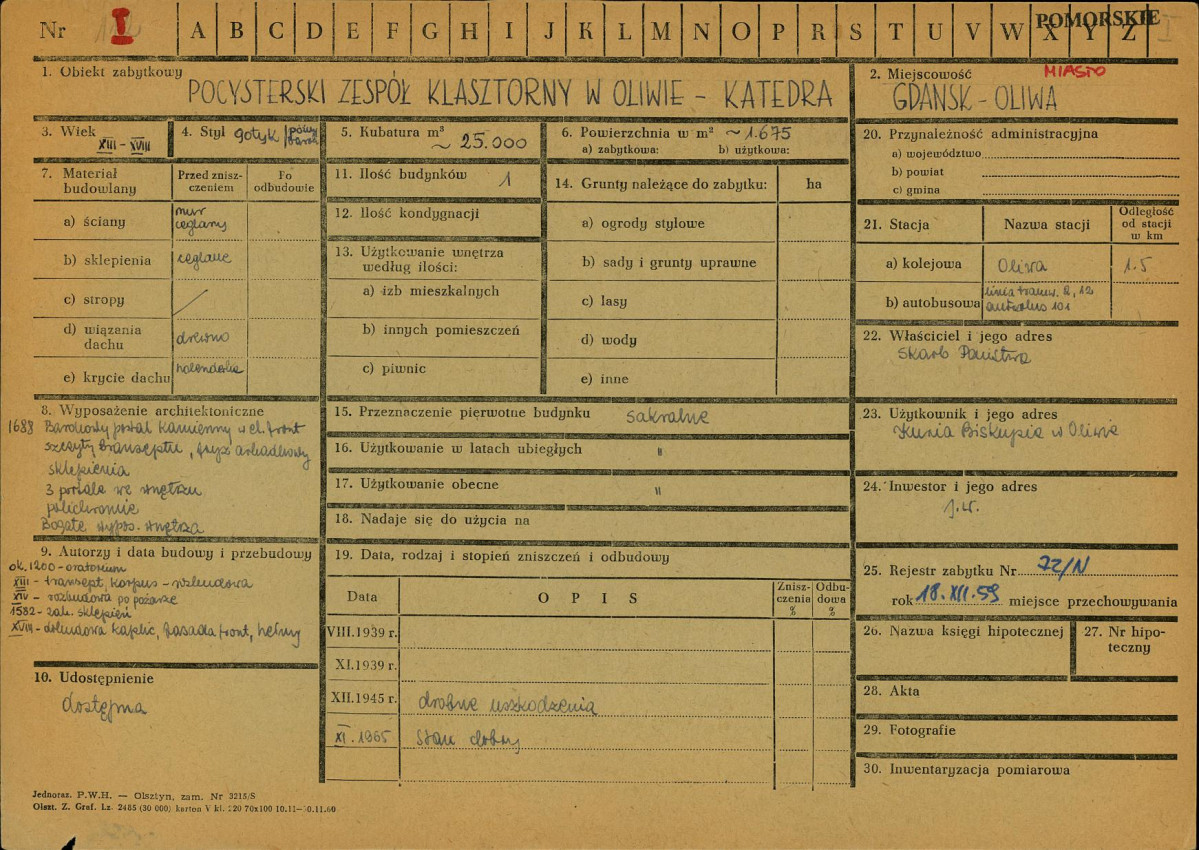 Nr I A B C D E F G H I J K L M N O P R S T U V W X Y Z I
POMORSKIE
1. Obiekt zabytkowy
POCYSTERSKI ZESPÓŁ KLASZTORNY W OLIWIE - KATEDRA
2. Miejscowość
MIASTO
GDAŃSK - OLIWA
3. Wiek
XIII - XVIII
4. Styl gotyk
5. Kubatura m³
~ 25.000
6. Powierzchnia w m² ~1.675
a) zabytkowa: b) użytkowa:
20. Przynależność administracyjna
a) województwo
b) powiat
c) gmina
7. Materiał budowlany
Przed zniszczeniem
Po odbudowie
a) ściany mur ceglany
b) sklepienia ceglane
c) stropy /
d) wiązania dachu drewno
e) krycie dachu holenderka
11. Ilość budynków 1
12. Ilość kondygnacji
13. Użytkowanie wnętrza
według ilości:
a) izb mieszkalnych
b) innych pomieszczeń
c) piwnic
14. Grunty należące do zabytku: ha
a) ogrody stylowe
b) sady i grunty uprawne
c) lasy
d) wody
e) inne
21. Stacja
Nazwa stacji
Odległość
od stacji
w km
a) kolejowa Oliwa 1.5
b) autobusowa linia tramw. 2, 12
autobus 101
22. Właściciel i jego adres
Skarb Państwa
8. Wyposażenie architektoniczne
1688 Barokowy portal kamienny w el. front
szczyty transeptu, fryz arkadkowy
sklepienia
3 portale we wnętrzu
polichromie
Bogate wypos. wnętrza
15. Przeznaczenie pierwotne budynku sakralne
16. Użytkowanie w latach ubiegłych "
17. Użytkowanie obecne "
18. Nadaje się do użycia na
23. Użytkownik i jego adres
Kuria Biskupia w Oliwie
24. Inwestor i jego adres
j.w.
9. Autorzy i data budowy i przebudowy
ok. 1200 - oratorium
XIII - transept, korpus - rozbudowa
XIV - rozbudowa po pożarze
1582 - zał. sklepień
XVIII - dobudowa kaplic, fasada front, hełmy
10. Udostępnienie
dostępna
19. Data, rodzaj i stopień zniszczeń i odbudowy
Data
O P I S
Zniszczenia
%
Odbudowa
%
VIII.1939 r.
XI.1939 r.
XII.1945 r. drobne uszkodzenia
XI.1965 Stan dobry
25. Rejestr zabytku Nr 72/N
rok 18.XII.59 miejsce przechowywania
26. Nazwa księgi hipotecznej
27. Nr hipoteczny
28. Akta
29. Fotografie
30. Inwentaryzacja pomiarowa
Jednoraz. P.W.H. — Olsztyn, zam. Nr 3215/S
Olszt. Z. Graf. Lz. 2485 (30 000) karton V kl. 220 70x100 10.11